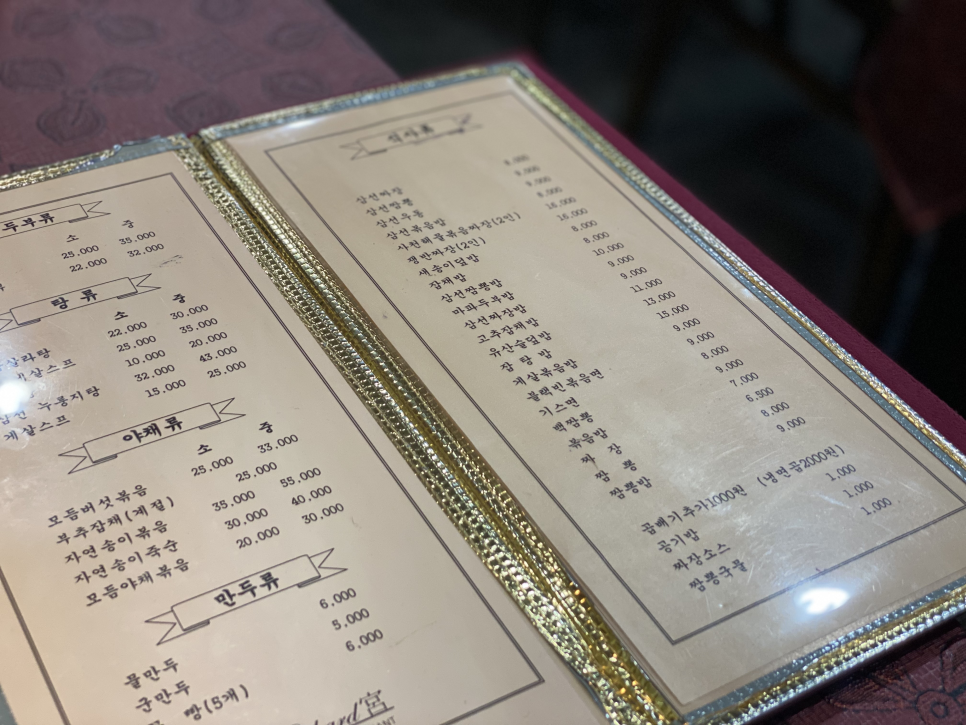 두부류
소 중
25,000 35,000
22,000 32,000
탕 류
소 중
22,000 30,000
25,000 35,000
10,000 20,000
누룽지탕 32,000 43,000
게살스프 15,000 25,000
야채류
소 중
모듬버섯볶음 25,000 33,000
부추잡채(계절) 25,000
자연송이볶음 35,000 55,000
자연송이죽순 30,000 40,000
모듬야채볶음 20,000 30,000
만두류
물만두 6,000
군만두 5,000
빵(5개) 6,000
宮
식사류
삼선짜장 8,000
삼선짬뽕 9,000
삼선우동 9,000
삼선볶음밥 8,000
사천해물볶음짜장(2인) 16,000
쟁반짜장(2인) 16,000
새송이덮밥 8,000
잡채밥 8,000
삼선짬뽕밥 10,000
마파두부밥 9,000
삼선짜장밥 9,000
고추잡채밥 11,000
유산슬덮밥 13,000
잡 탕 밥 15,000
게살볶음밥 9,000
블랙빈볶음면 9,000
기스면 8,000
백짬뽕 9,000
볶음밥 7,000
짜 장 6,500
짬 뽕 8,000
짬뽕밥 9,000
곱배기추가1000원 (냉면곱2000원)
공기밥 1,000
짜장소스 1,000
짬뽕국물 1,000